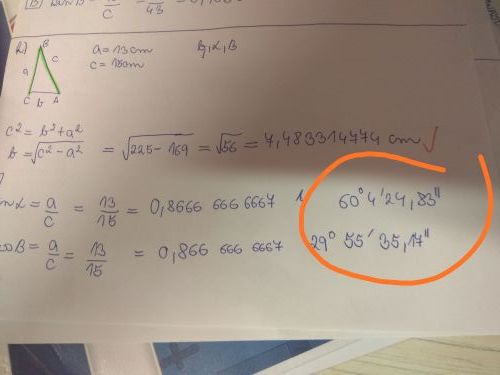 B) tan B = = 43
2.) B a = 13 cm B, α, B
a c c = 15 cm
C b A
c² = b² + a²
b = √c² - a² = √225 - 169 = √56 = 7,483314774 cm
sin α = a/c = 13/15 = 0,8666 666 6667 60° 4' 24,83"
cos B = a/c = 13/15 = 0,866 666 6667 29° 55' 35,17"